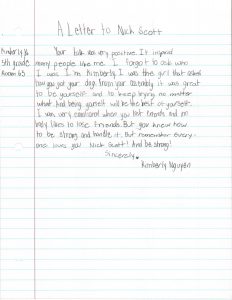 A Letter to Nick Scott
Kimberly N
5th grade
Room 65
Your talk was very positive. It inspired
many people like me. I forgot to ask who
I was, I'm Kimberly I was the girl that asked
how you got your dog. From your assembly it was great
to be yourself and to keep trying no matter
what. And being yourself will be the best of yourself.
I was very emotional when you lost friends and no
body likes to lose friends. But you knew how
to be strong and handle it. But remember every-
one loves you Nick Scott! And be strong!
Sincerely,
Kimberly Nguyen